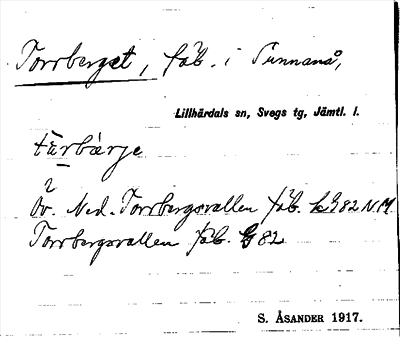 Torrberget, fäb. i Sunnanå,
Lillhärdals sn, Svegs tg, Jämtl. l.
tùrbàrje
Öv. Ned. Torrbergsvallen fäb. G 82 N.M
Torrbergsvallen fäb. G 82
S. ÅSANDER 1917.